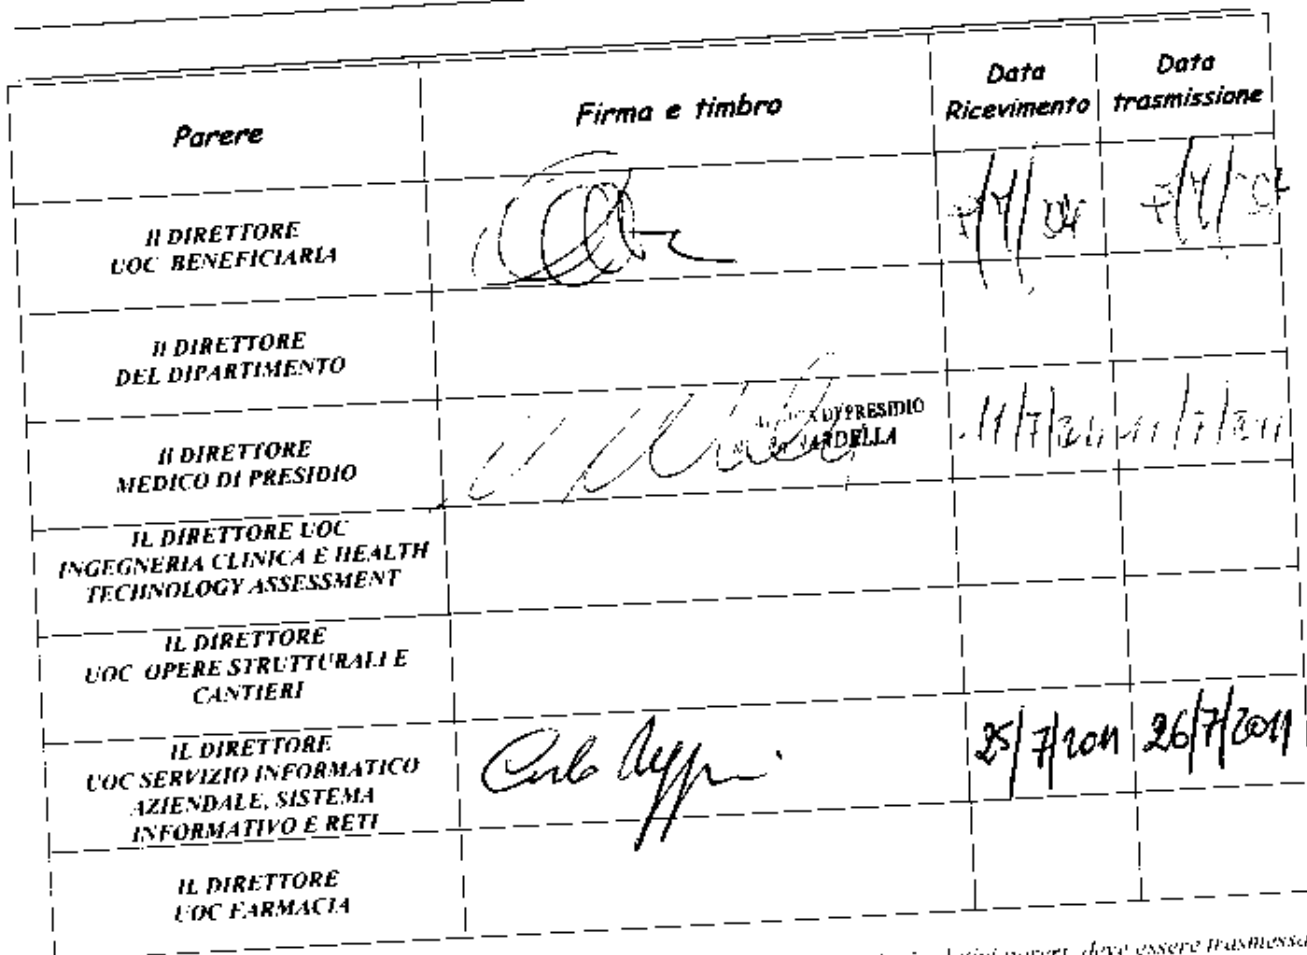 Parere
Firma e timbro
Data
Ricevimento
Data
trasmissione
Il DIRETTORE
UOC BENEFICIARIA
Il DIRETTORE
DEL DIPARTIMENTO
Il DIRETTORE
MEDICO DI PRESIDIO
DI PRESIDIO
NARDELLA
11/7/2011
11/7/2011
IL DIRETTORE UOC
INGEGNERIA CLINICA E HEALTH
TECHNOLOGY ASSESSMENT
IL DIRETTORE
UOC OPERE STRUTTURALI E
CANTIERI
IL DIRETTORE
UOC SERVIZIO INFORMATICO
AZIENDALE, SISTEMA
INFORMATIVO E RETI
Carlo
25/7/2011
26/7/2011
IL DIRETTORE
UOC FARMACIA
deve essere trasmessa